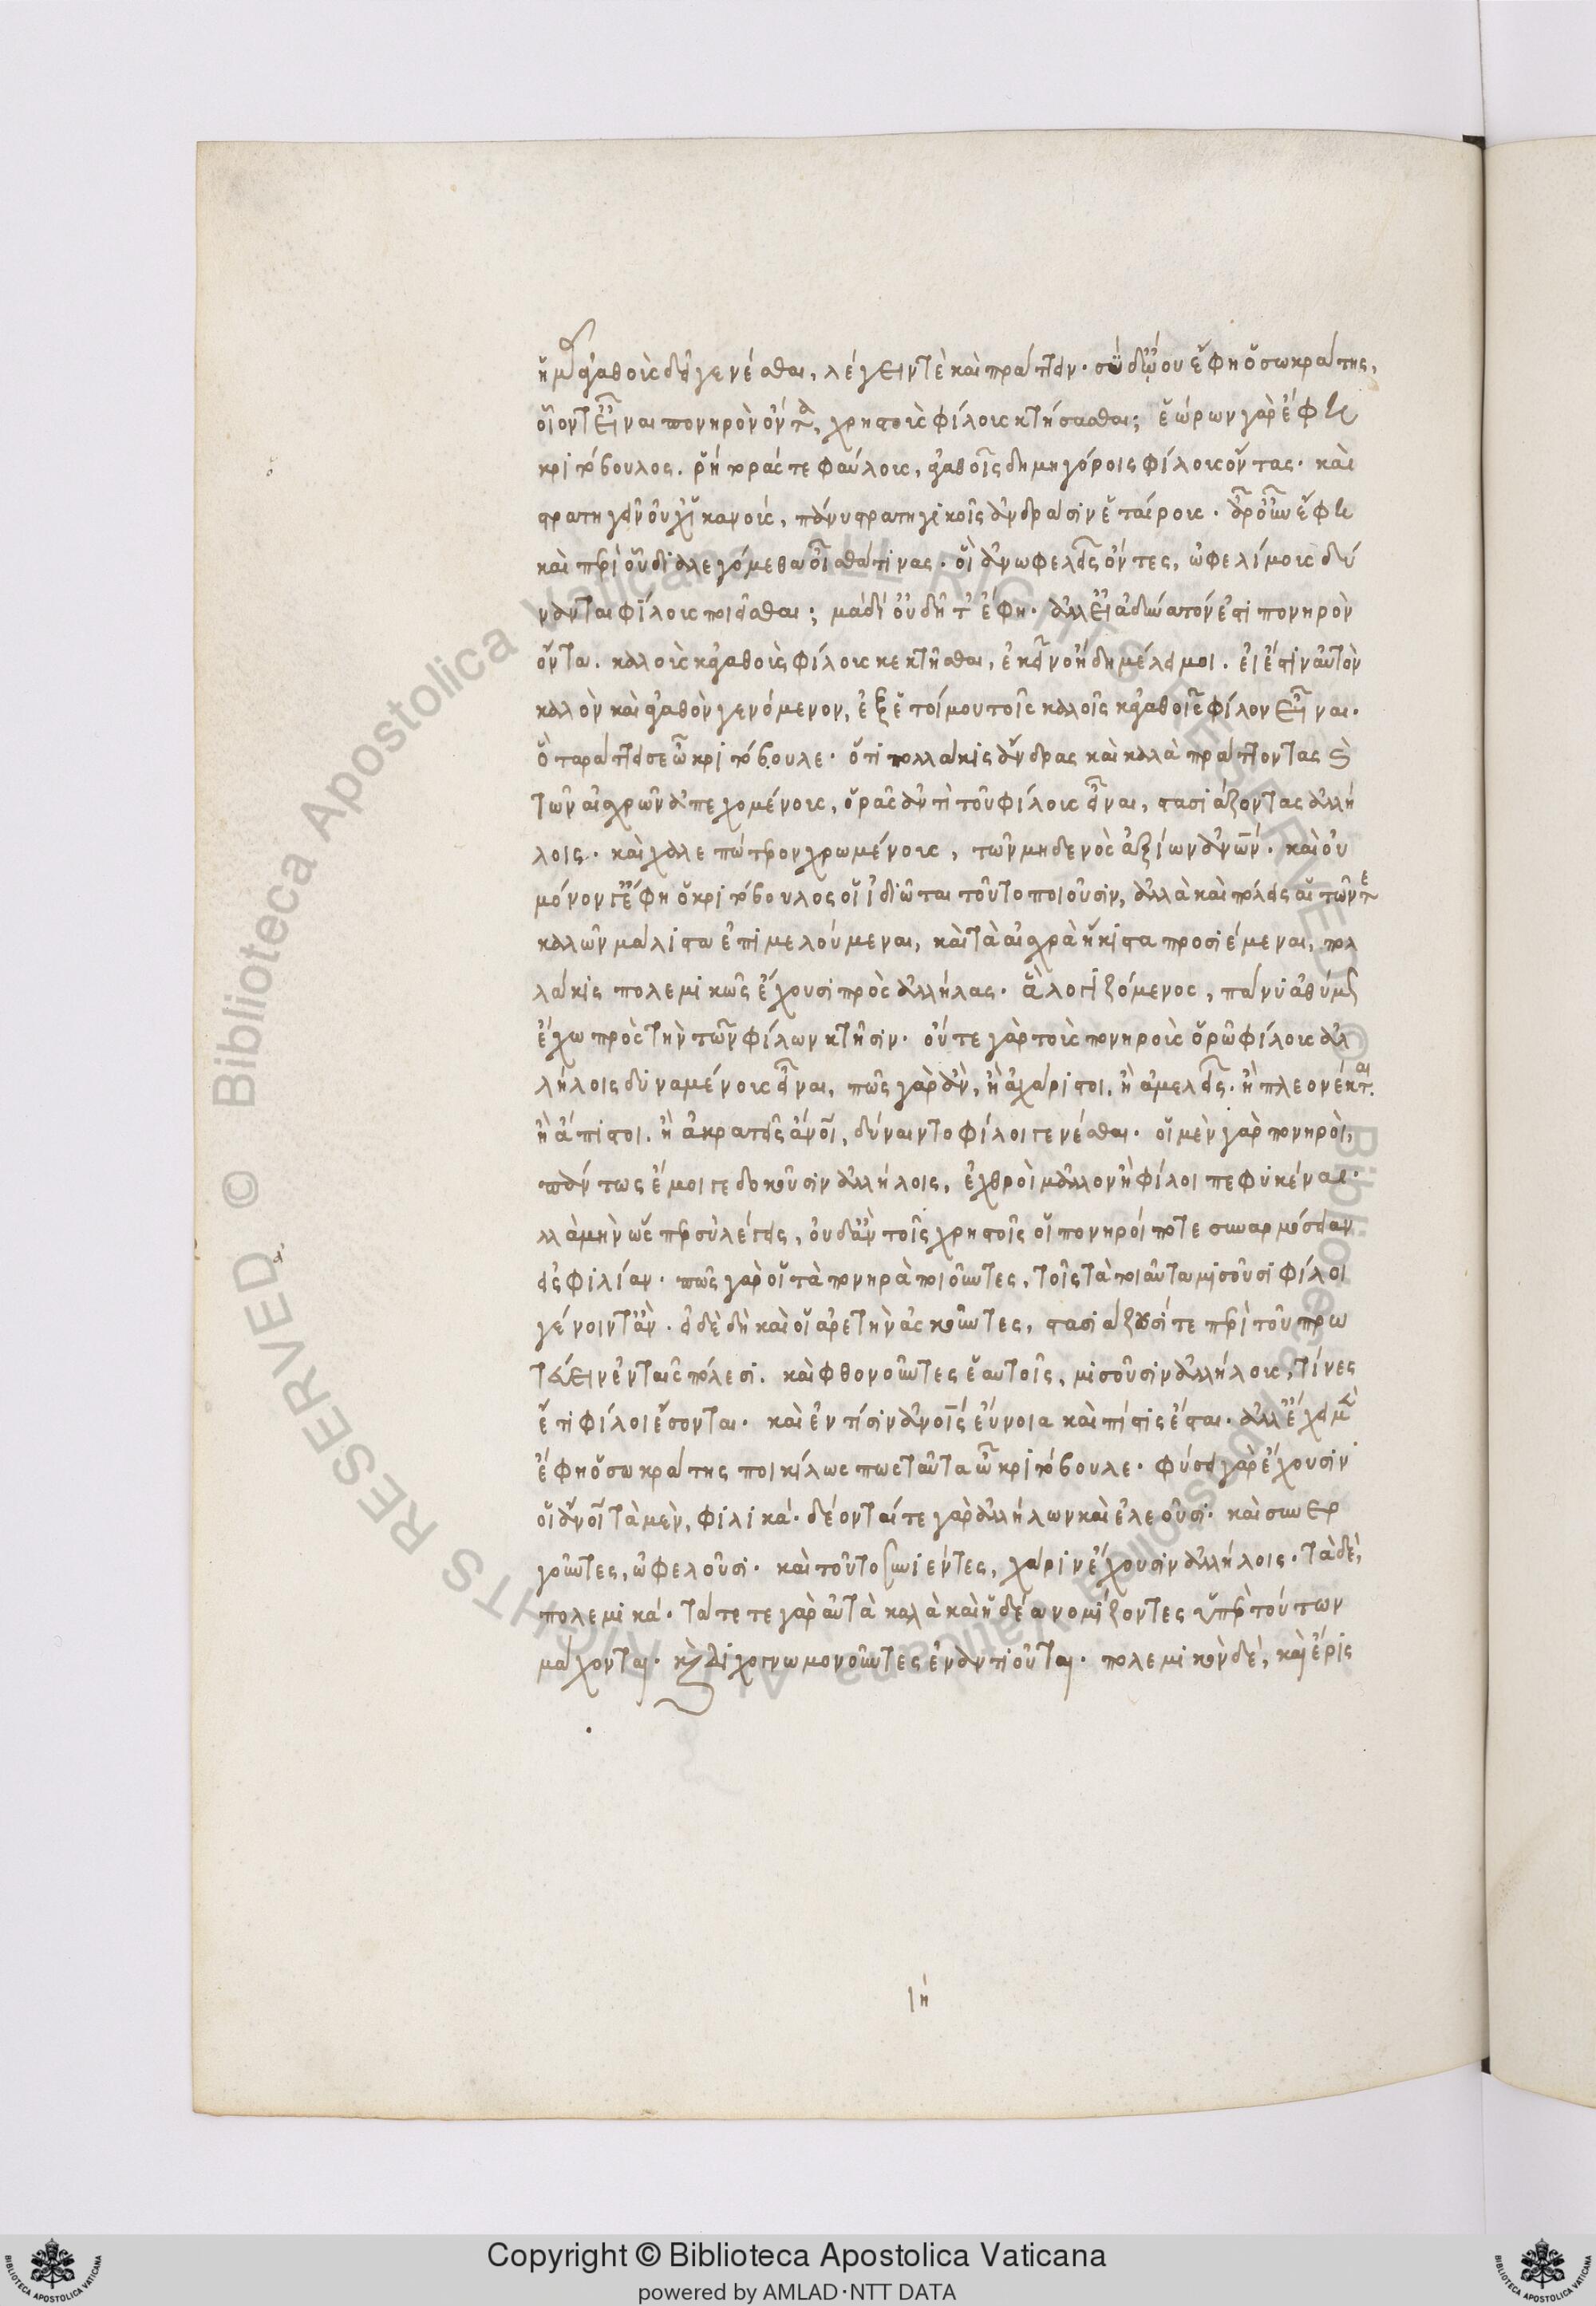 ἡμᾶς ἀγαθοὺς δεῖ γενέσθαι, λέγειν τὲ καὶ πράττειν· σὺ δ᾽ ᾤου ἔφη ὁ σωκράτης,
οἷόν τ᾽ εἶναι πονηρὸν ὄντα, χρηστοὺς φίλους κτήσασθαι; ἑώρων γὰρ ἔφη
κριτόβουλος. ῥήτοράς τε φαύλους, ἀγαθοῖς δημηγόροις φίλους ὄντας· καὶ
στρατηγεῖν οὐχ ἱκανοὺς, πάνυ στρατηγικοῖς ἀνδράσιν ἑταίρους· ἆρ᾽ οὖν ἔφη
καὶ περὶ οὗ διαλεγόμεθα οἶσθά τινας· οἳ ἀνωφελεῖς ὄντες, ὠφελίμους δύ
νανται φίλους ποιεῖσθαι; μὰ δί᾽ οὐ δῆτ᾽ ἔφη· ἀλλ᾽ εἰ ἀδύνατόν ἐστι πονηρὸν
ὄντα. καλοὺς κἀγαθοὺς φίλους κεκτῆσθαι, ἐκεῖνο ἤδη μέλει μοι. εἰ ἔστιν αὐτὸν
καλὸν καὶ ἀγαθὸν γενόμενον, ἐξ ἑτοίμου τοῖς καλοῖς κἀγαθοῖς φίλον εἶναι·
ὃ ταράττει σε ὦ κριτόβουλε· ὅτι πολλάκις ἄνδρας καὶ καλὰ πράττοντας καὶ
τῶν αἰσχρῶν ἀπεχομένους, ὁρᾶς ἀντὶ τοῦ φίλους εἶναι, στασιάζοντας ἀλλή
λοις. καὶ χαλεπώτερον χρωμένους, τῶν μηδενὸς ἀξίων ἀνῶν· καὶ οὐ
μόνον γ᾽ ἔφη ὁ κριτόβουλος οἱ ἰδιῶται τοῦτο ποιοῦσιν, ἀλλὰ καὶ πόλεις αἱ τῶν τε
καλῶν μάλιστα ἐπιμελούμεναι, καὶ τὰ αἰσχρὰ ἥκιστα προσιέμεναι, πολ
λάκις πολεμικῶς ἔχουσι πρὸς ἀλλήλας· ἃ λογιζόμενος, πάνυ ἀθύμως
ἔχω πρὸς τὴν τῶν φίλων κτῆσιν· οὔτε γὰρ τοὺς πονηροὺς ὁρῶ φίλους ἀλ
λήλοις δυναμένους εἶναι, πῶς γὰρ ἂν, ἢ ἀχάριστοι. ἢ ἀμελεῖς. ἢ πλεονέκται.
ἢ ἄπιστοι. ἢ ἀκρατεῖς ἄνοι, δύναιντο φίλοι γενέσθαι· οἱ μὲν γὰρ πονηροὶ,
πάντως ἔμοιγε δοκοῦσιν ἀλλήλοις, ἐχθροὶ μᾶλλον ἢ φίλοι πεφυκέναι·
λλὰ μὴν ὥσπερ σὺ λέγεις, οὐδ᾽ ἂν τοῖς χρηστοῖς οἱ πονηροί ποτε συναρμόσειαν
εἰς φιλίαν· πῶς γὰρ οἱ τὰ πονηρὰ ποιοῦντες, τοῖς τὰ τοιαῦτα μισοῦσι φίλοι
γένοιντ᾽ ἄν. εἰ δὲ δὴ καὶ οἱ ἀρετὴν ἀσκοῦντες, στασιάζουσί τε περὶ τοῦ πρω
τεύειν ἐν ταῖς πόλεσι. καὶ φθονοῦντες ἑαυτοῖς, μισοῦσιν ἀλλήλους, τίνες
ἔτι φίλοι ἔσονται· καὶ ἐν τίσιν ἀνοις εὔνοια καὶ πίστις ἔσται· ἀλλ᾽ ἔχει μὲν
ἔφη ὁ σωκράτης ποικίλως πως ταῦτα ὦ κριτόβουλε· φύσει γὰρ ἔχουσιν
οἱ ἄνοι τὰ μὲν, φιλικά· δέονταί τε γὰρ ἀλλήλων καὶ ἐλεοῦσι· καὶ συνερ
γοῦντες, ὠφελοῦσι· καὶ τοῦτο συνιέντες, χάριν ἔχουσιν ἀλλήλοις· τὰ δὲ,
πολεμικά· τά τε γὰρ αὐτὰ καλὰ καὶ ἡδέα νομίζοντες ὑπὲρ τούτων
μάχονται· καὶ διχογνωμονοῦντες ἐναντιοῦνται· πολεμικὸν δὲ, καὶ ἔρις
ιη
Copyright © Biblioteca Apostolica Vaticana
powered by AMLAD·NTT DATA